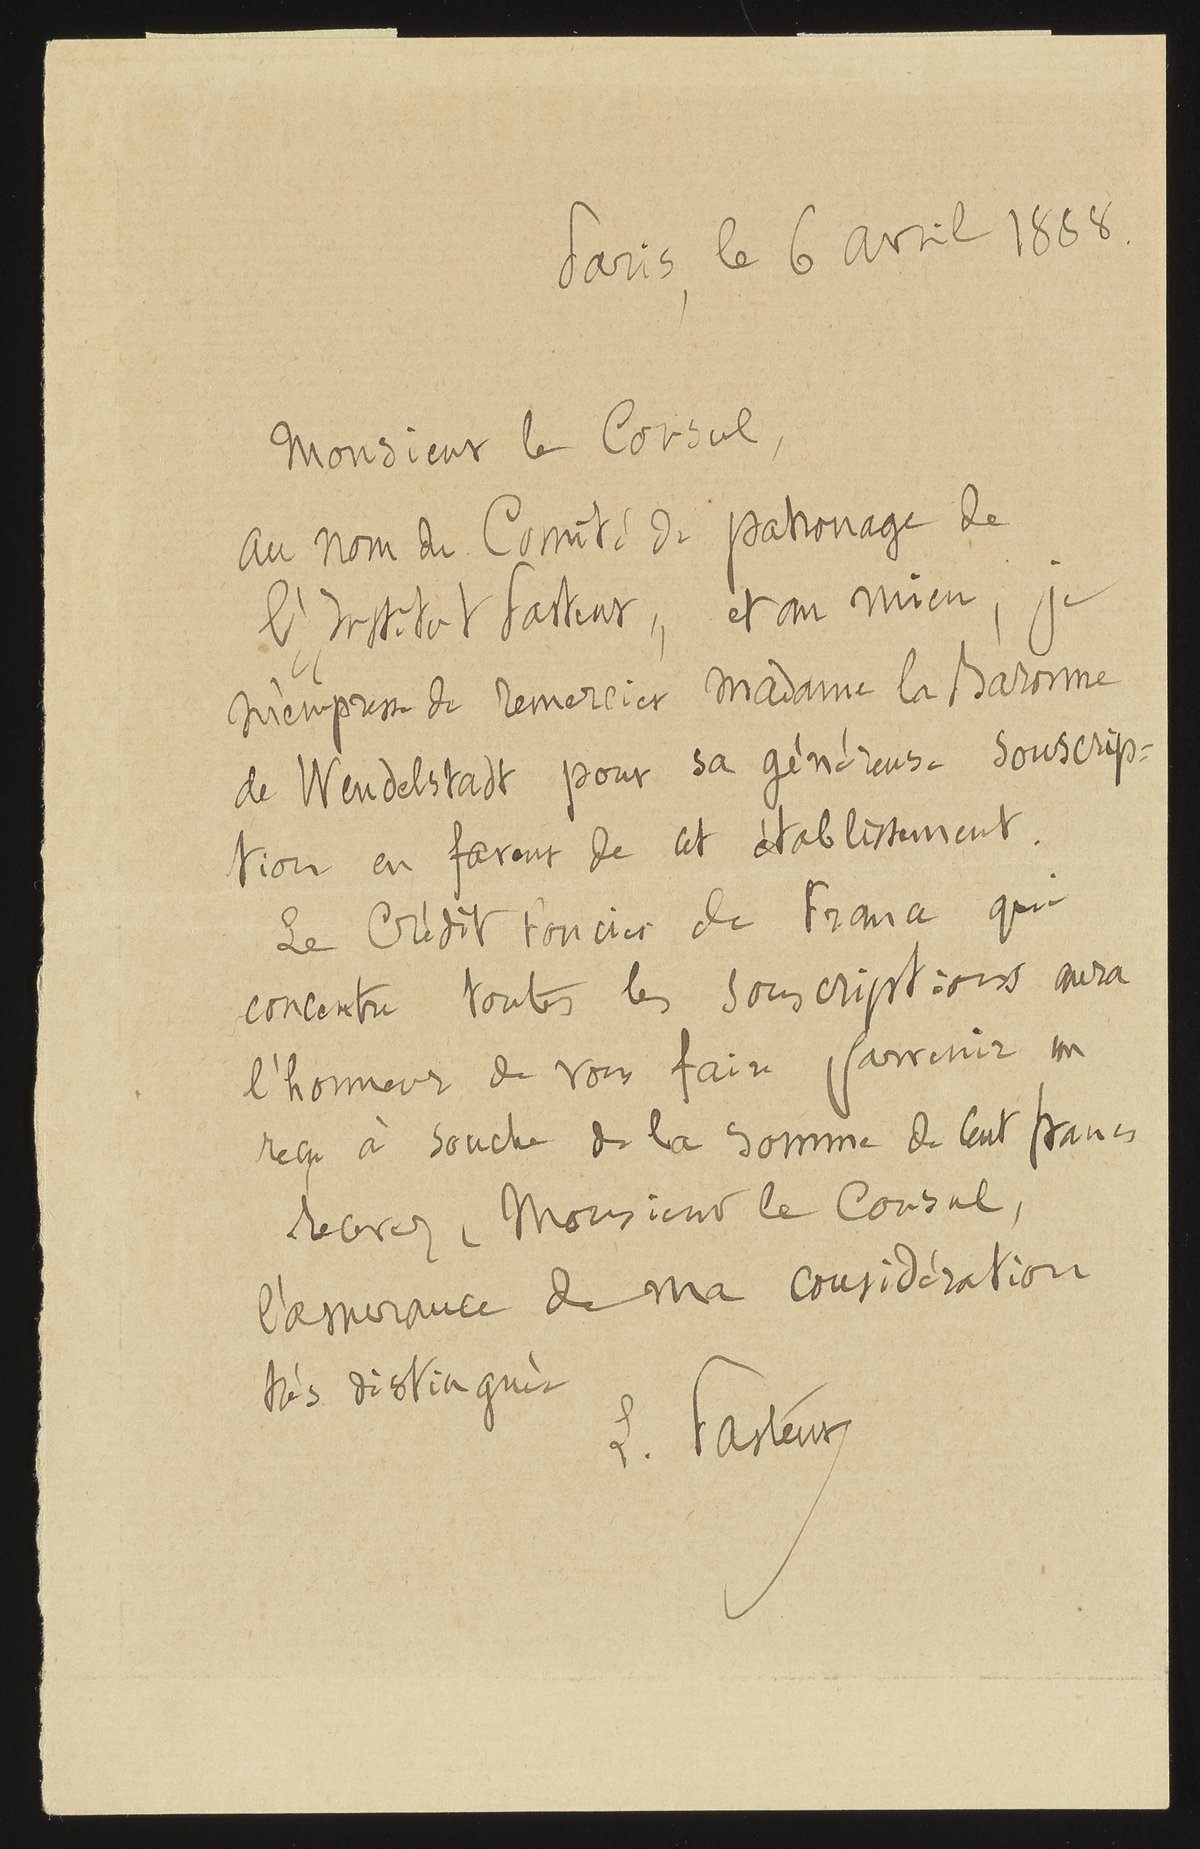 Paris, le 6 avril 1888.
Monsieur le Consul,
au nom du Comité de patronage de
l'"Institut Pasteur", et au mien, je
m'empresse de remercier Madame la Baronne
de Wendelstadt pour sa généreuse souscrip=
tion en faveur de cet établissement.
Le Crédit Foncier de France qui
concentre toutes les souscriptions aura
l'honneur de vous faire parvenir un
reçu à souche de la somme de Cent francs
Recevez, Monsieur le Consul,
l'assurance de ma considération
très distinguée
L. Pasteur